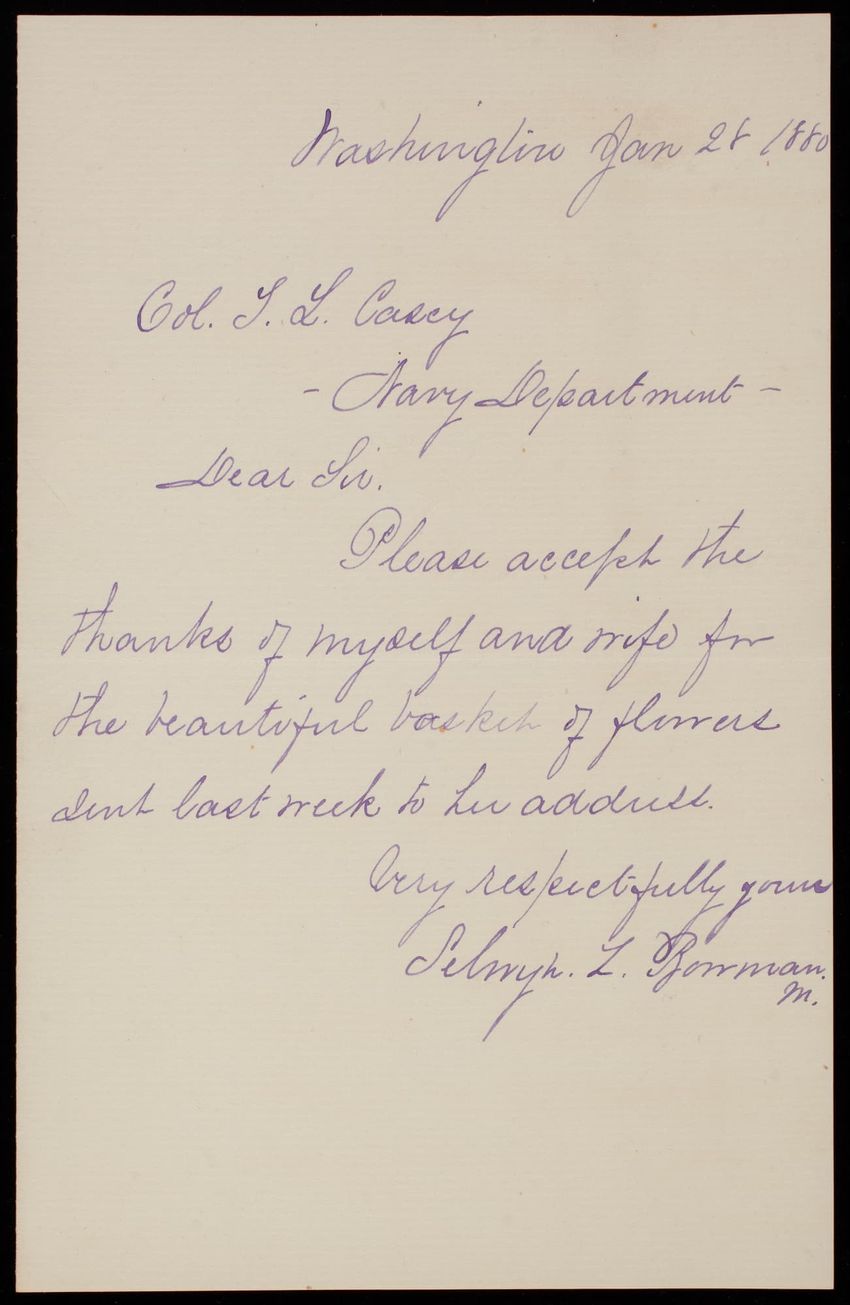 Washington Jan 28 1880
Col. T. L. Casey
- Navy Department -
Dear Sir.
Please accept the
thanks of myself and wife for
the beautiful basket of flowers
sent last week to her address.
Very respectfully yours
Selwyn. Z. Bowman.
M.